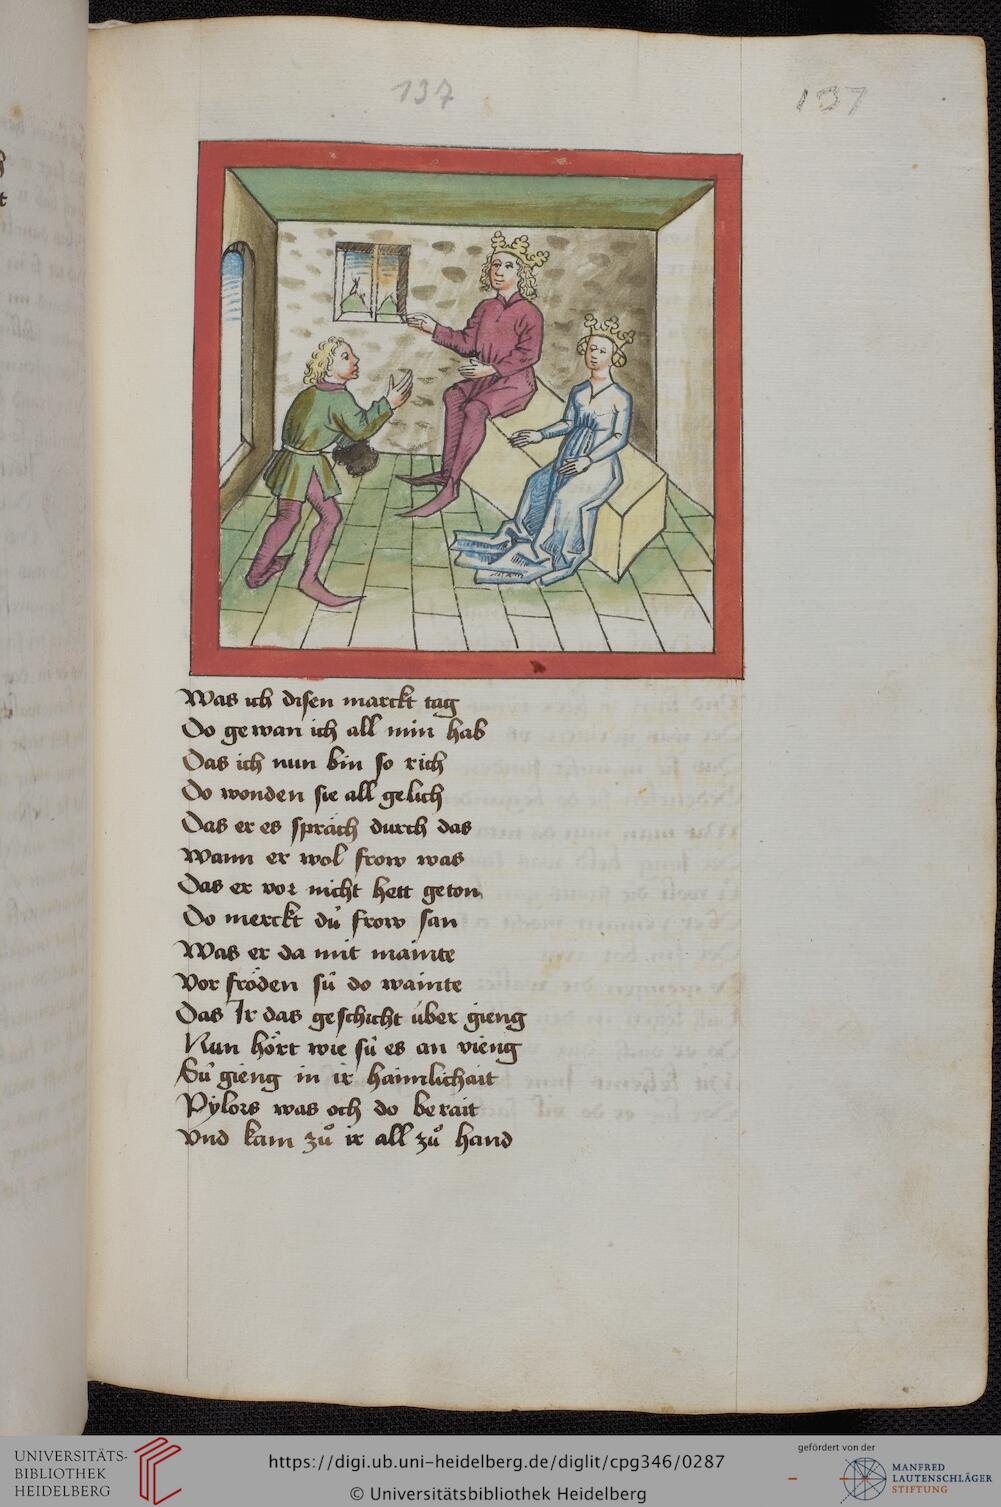 137
137
Was ich disen marckt tag
Do gewan ich all min hab
Das ich nun bin so rich
Do wonden sie all gelich
Das er es spräch durch das
Wann er wol frow was
Das er vor nicht hett geton
Do merckt dü frow san
Was er da mit mainte
Vor fröden sü do wainte
Das Ir das geschicht über gieng
Nun hört wie sü es an vieng
Sü gieng in ir haimlichait
Pylors was och do berait
Vnd kam zuͦ ir all zuͦ hand
UNIVERSITÄTS-
BIBLIOTHEK
HEIDELBERG
https://digi.ub.uni-heidelberg.de/diglit/cpg346/0287
© Universitätsbibliothek Heidelberg
gefördert von der
MANFRED
LAUTENSCHLÄGER
STIFTUNG